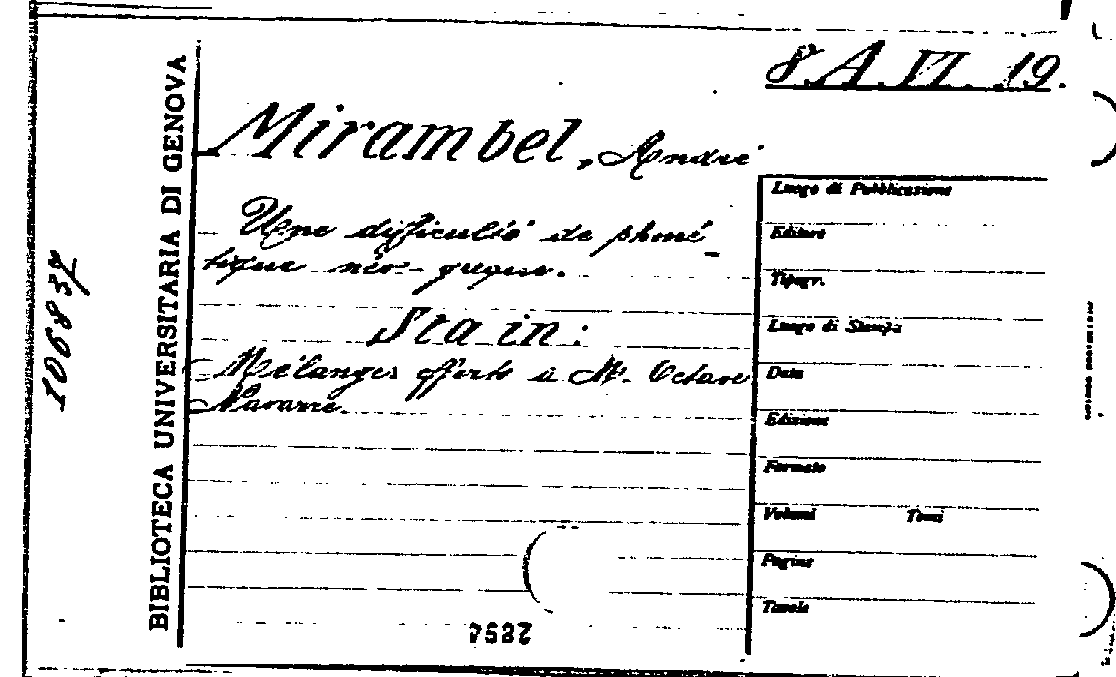 8.A.VI.19.
BIBLIOTECA UNIVERSITARIA DI GENOVA
106837
Mirambel, André
Une difficulté de phoné-
tique néo-grecque.
Sta in:
Mélanges offerts à Mr. Octave
Navarre.
Luogo di Pubblicazione
Editore
Tipogr.
Luogo di Stampa
Data
Edizione
Formato
Volumi Tomi
Pagine
Tavole